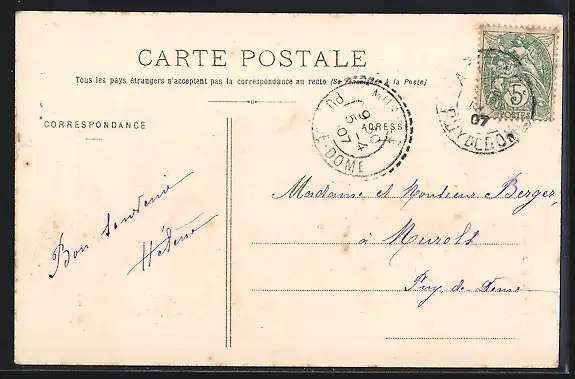 CARTE POSTALE
Tous les pays étrangers n'acceptent pas la correspondance au recto (Se à la Poste)
CORRESPONDANCE
ADRESSE
9 30
5 -4
07
PUY-DE-DOME
07
PUY DE DOME
5c
POSTES
Bon Souvenir
Hélène
Madame et Monsieur Berger,
à Murols
Puy-de-Dome